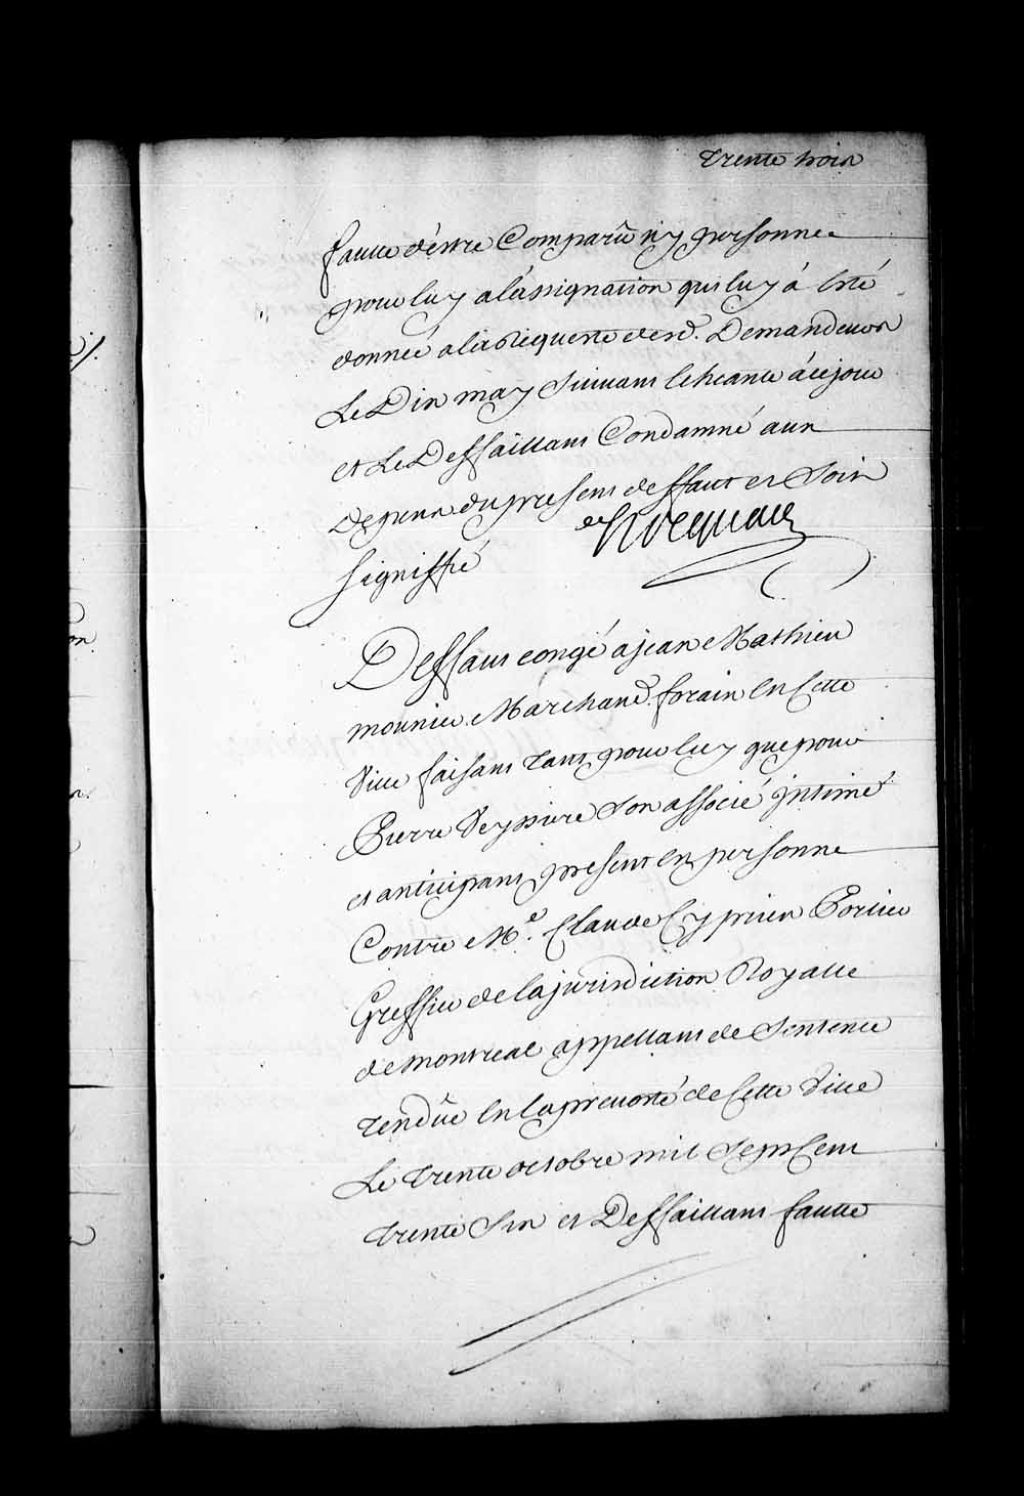 trente trois
faute d'estre Comparû ny personne
pour luy a l'assignation qui luy á esté
donnée a la Requeste desd. Demandeurs
Le Dix may suivant lecheante á ce jour
et Le Deffaillant Condamné aux
Depens du present deffaut et Soit
Signiffié
Hocquart
Deffaut congé a jean Mathieu
mounier Marchand forain en Cette
Ville faisant tant pour luy que pour
Pierre Veyssiere son associé jntimé
et anticipant present en personne
Contre Me. Claude Cyprien Portier
Greffier de la jurisdiction Royalle
de Montreal appellant de Sentence
rendûe en la prevosté de Cette Ville
Le trente octobre mil Sept Cent
trente Six et Deffaillant faute